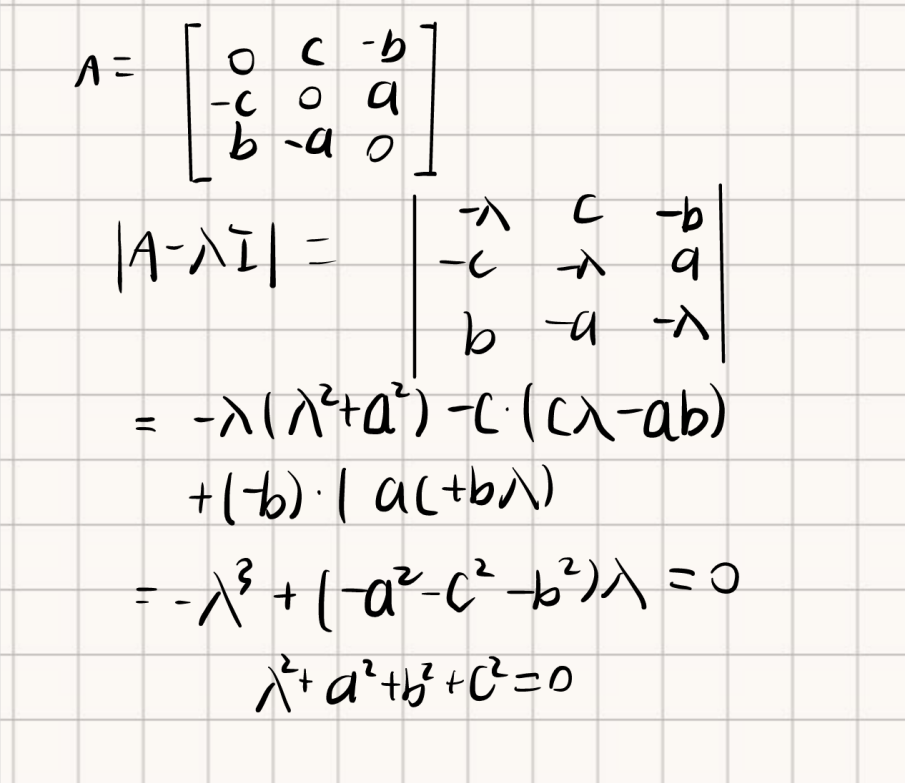 A = [ 0 c -b
-c 0 a
b -a 0 ]
|A-λI| = | -λ c -b
-c -λ a
b -a -λ |
= -λ(λ²+a²) -c·(cλ-ab)
+(-b)·(ac+bλ)
= -λ³ + (-a²-c²-b²)λ = 0
λ²+a²+b²+c²=0